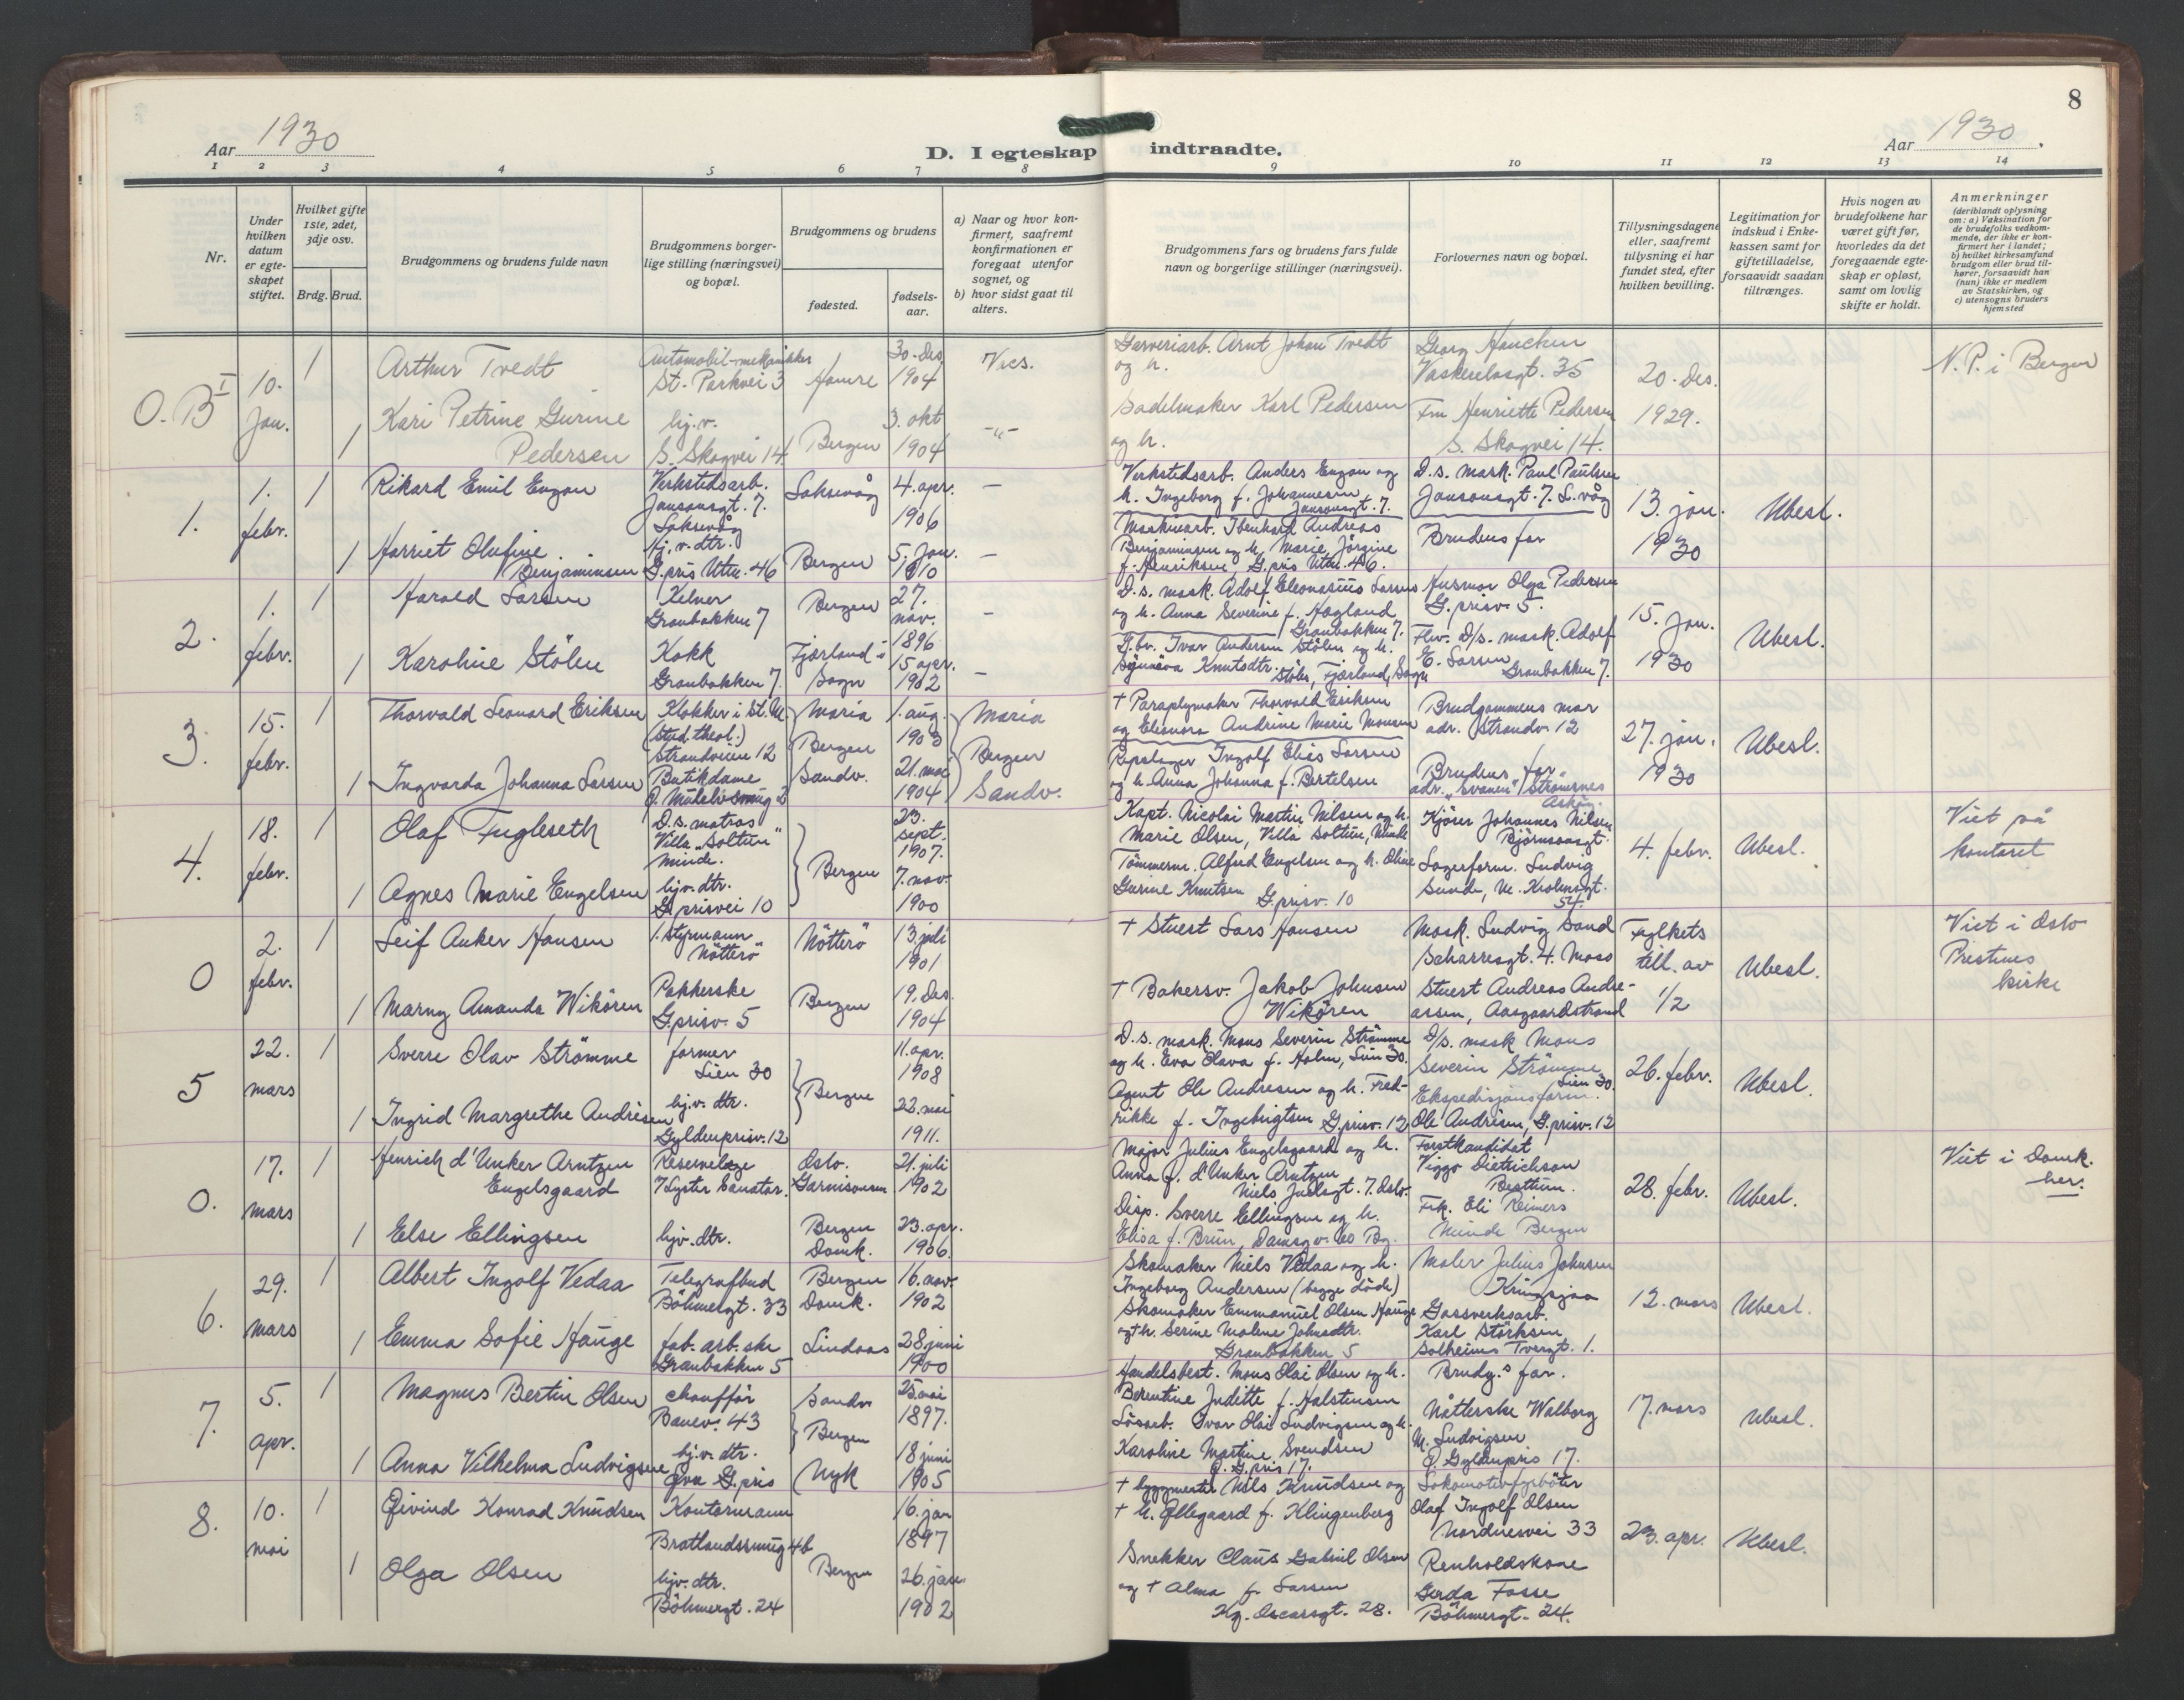 8
Aar 1930
D. I egteskap indtraadte.
Aar 1930.
1 2 3 4 5 6 7 8 9 10 11 12 13 14
Nr.
Under hvilken datum er egteskapet stiftet.
Hvilket gifte 1ste, 2det, 3dje osv.
Brdg. Brud.
Brudgommens og brudens fulde navn
Brudgommens borgerlige stilling (næringsvei) og bopæl.
Brudgommens og brudens
fødested.
fødselsaar.
a) Naar og hvor konfirmert, saafremt konfirmationen er foregaat utenfor sognet, og
b) hvor sidst gaat til alters.
Brudgommens fars og brudens fars fulde navn og borgerlige stillinger (næringsvei).
Forlovernes navn og bopæl.
Tillysningsdagene eller, saafremt tillysning ei har fundet sted, efter hvilken bevilling.
Legitimation for indskud i Enkekassen samt for giftetilladelse, forsaavidt saadan tiltrænges.
Hvis nogen av brudefolkene har været gift før, hvorledes da det foregaaende egteskap er opløst, samt om lovlig skifte er holdt.
Anmerkninger
(deriblandt oplysning om: a) Vaksination for de brudefolks vedkommende, der ikke er konfirmert her i landet; b) hvilket kirkesamfund brudgom eller brud tilhører, forsaavidt han (hun) ikke er medlem av Statskirken, og c) utensogns bruders hjemsted
O.B I 10. Jan.
1 Arthur Tvedt
Automobil-mekaniker
St. Parkvei 3
Hamre
30. Des. 1904
Garveriarb. Arnt Johan Tvedt
og h.
Georg
35
20. Des. 1929.
N.P. i Bergen
1 Kari Petrine Gurine
Pedersen
hj.v.
S. Skogvei 14
Bergen
3. okt 1904
-"-
Sadelmaker Karl Pedersen
og h.
Fru Henriette Pedersen
S. Skogvei 14.
1. 1. febr.
1 Rikard Emil Engan
Verkstedsarb.
Jansonsgt. 7.
Laksevåg
Laksevåg
4. apr. 1906
-
Verkstedsarb. Anders Engan og
h. Ingeborg f. Johannesen
Jansonsgt. 7.
D.s. mask. Paul Paulsen
Jansonsgt. 7. L.våg
13. jan. 1930
Ubesl.
1 Harriet Olufine
Benjaminsen
hj.v. dtr.
G.pris Utm. 46
Bergen
5. Jan. 1910
-
Maskinarb. Ibenhard Andreas
Benjaminsen og h. Marie Jörgine
f. Henriksen, G.pris Utm. 46.
Brudens far
2. 1. febr.
1 Harald Larsen
Kelner
Granbakken 7
Bergen
27. nov. 1896
-
D.s. mask. Adolf Larsen
og h. Anna Severine f. Hogland
Granbakken 7.
Husmor Olga Pedersen
G.prisv. 5.
15. Jan. 1930
Ubesl.
1 Karoline Stölen
Kokk
Granbakken 7
Fjærland i Sogn
15 apr. 1902
-
G.br. Ivar Andersen Stölen og h.
Synneva Knutsdtr. Stölen, Fjærland, Sogn
D/s. mask. Adolf
E. Larsen Granbakken 7.
3. 15. febr.
1 Thorvald Leonard Eriksen
Klokker i St. M.
(Stud. theol.)
Strandveien 12
Maria
Bergen
1. aug. 1903
Maria
Bergen
† Paraplymaker Thorvald Eriksen
og Eleonora Andrine Marie Monsen
Brudgommens mor
adr. Strandv. 12
27. jan. 1930
Ubesl.
1 Ingvarda Johanna Larsen
Butikdame
Sandv.
21. mai 1904
Sandv.
Repslager Ingolf Elias Larsen
og h. Anna Johanna f. Bertelsen
Brudens far
adr. "Svanen" Strömsnes
Askøy.
4. 18. febr.
1 Olaf Fugleseth
D.s. matros
Villa "Soltun"
Minde.
Bergen
23. sept. 1907.
Kapt. Nicolai Martin Nilsen og h.
Marie Olsen, Villa Soltun, Minde
Kjörer Johannes Nilsen
Björnsonsgt.
4. febr.
Ubesl.
Viet på
kontoret
1 Agnes Marie Engelsen
hj.v. dtr.
G.prisvei 10
7. nov. 1900
Tömmerm. Alfred Engelsen og h. Oline
Gurine Knutsen G.prisv. 10
Lagerform. Ludvig
Sunde, M. Krohnsgt.
54.
O 2. febr.
1 Leif Anker Hansen
1. styrmann
"Nötterö"
Nötterö
13 juli 1901
† Stuert Lars Hansen
Mask. Ludvig Sand
4. Moss
Fylkets
till. av
1/2
Ubesl.
Viet i Oslo
kirke
1 Marny Amanda Wikören
Pakkerske
G.prisv. 5
Bergen
19. Des. 1904
† Bakersv. Jakob Johnsen
Wikören
Stuert Andreas Andreassen, Aasgaardstrand
5 22. mars
1 Sverre Olav Strömme
former
Lien 30
Bergen
11. apr. 1908
D.s. mask. Mons Severin Strömme
og h. Eva Olava f. Holm, Lien 30.
D/s. mask Mons
Severin Strömme
Lien 30.
26. febr.
Ubesl.
1 Ingrid Margrethe Andrésen
hj.v. dtr.
Gyldenprisv. 12
22. mai 1911.
Agent Ole Andresen og h. Fredrikke f. Ingebrigtsen G.prisv. 12
Ekspedisjonsform.
Ole Andrésen, G.prisv. 12
O. 17. mars
1 Henrich d'Unker Arntzen
Engelsgaard
Reservelæge
Lyster Sanator.
Oslo.
Garnisonsm
21. juli 1902
Major Julius Engelsgaard og h.
Anna f. d'Unker Arntzen
Niels Juelsgt. 7. Oslo.
Forstkandidat
Viggo Dietrichson
Bestum.
28. febr.
Ubesl.
Viet i Domk.
her.
1 Else Ellingsen
hjv. dtr.
Bergen
Domk.
23. apr. 1906.
Disp. Sverre Ellingsen og h.
Elisa f. Brun, Damsgv. 60 Bg.
Frk. Eli Reimers
Minde Bergen
6. 29. mars
1 Albert Ingolf Vedaa
Telegrafbud
Böhmergt. 33
Bergen
Domk.
16. nov. 1902
Skomaker Niels Vedaa og h.
Ingeborg Andersen (begge döde)
Maler Julius Johnsen
Kringsjaa
12. mars
Ubesl.
1 Emma Sofie Hauge
fab. arb.ske
Granbakken 5
Lindaas
28 juni 1900
Skomaker Emmanuel Olsen Hauge
og h. Serine Malene Johnsdtr.
Granbakken 5
Gassverksarb.
Karl Störksen
Solheims Tvergt. 1.
7. 5. apr.
1 Magnus Bertin Olsen
chauffør
Banev. 43
Sandv.
Bergen
25. mai 1897.
Handelsbest. Mons Olai Olsen og h.
Berentine Juditte f. Halstensen
Brudg.s far.
17. mars
Ubesl.
1 Anna Vilhelma Ludvigsen
hj.v. dtr.
Övre G.pris
Nyk
18 juni 1905
Lössarb. Ivar Olai Ludvigsen og h.
Karoline Martine Svendsen
Ö. G.pris 17.
Nåtterske Walborg
M. Ludvigsen
Ö. Gyldenpris 17.
8. 10. mai
1 Eivind Konrad Knudsen
Kontormann
Bratlandssmug 4b
Bergen
16. jan 1897
† byggmester Nils Knudsen og
† h. Ollegaard f. Klingenberg
Lokomotivfyrböter
Olaf Ingolf Olsen
Nordnesvei 33
23. apr.
Ubesl.
1 Olga Olsen
hjv. dtr.
Böhmergt. 24
26. jan. 1902
Snekker Claus Gabriel Olsen
og † Alma f. Larsen
Kg. Oscarsgt. 28.
Renholdskone
Gerda Fosse
Böhmergt. 24.